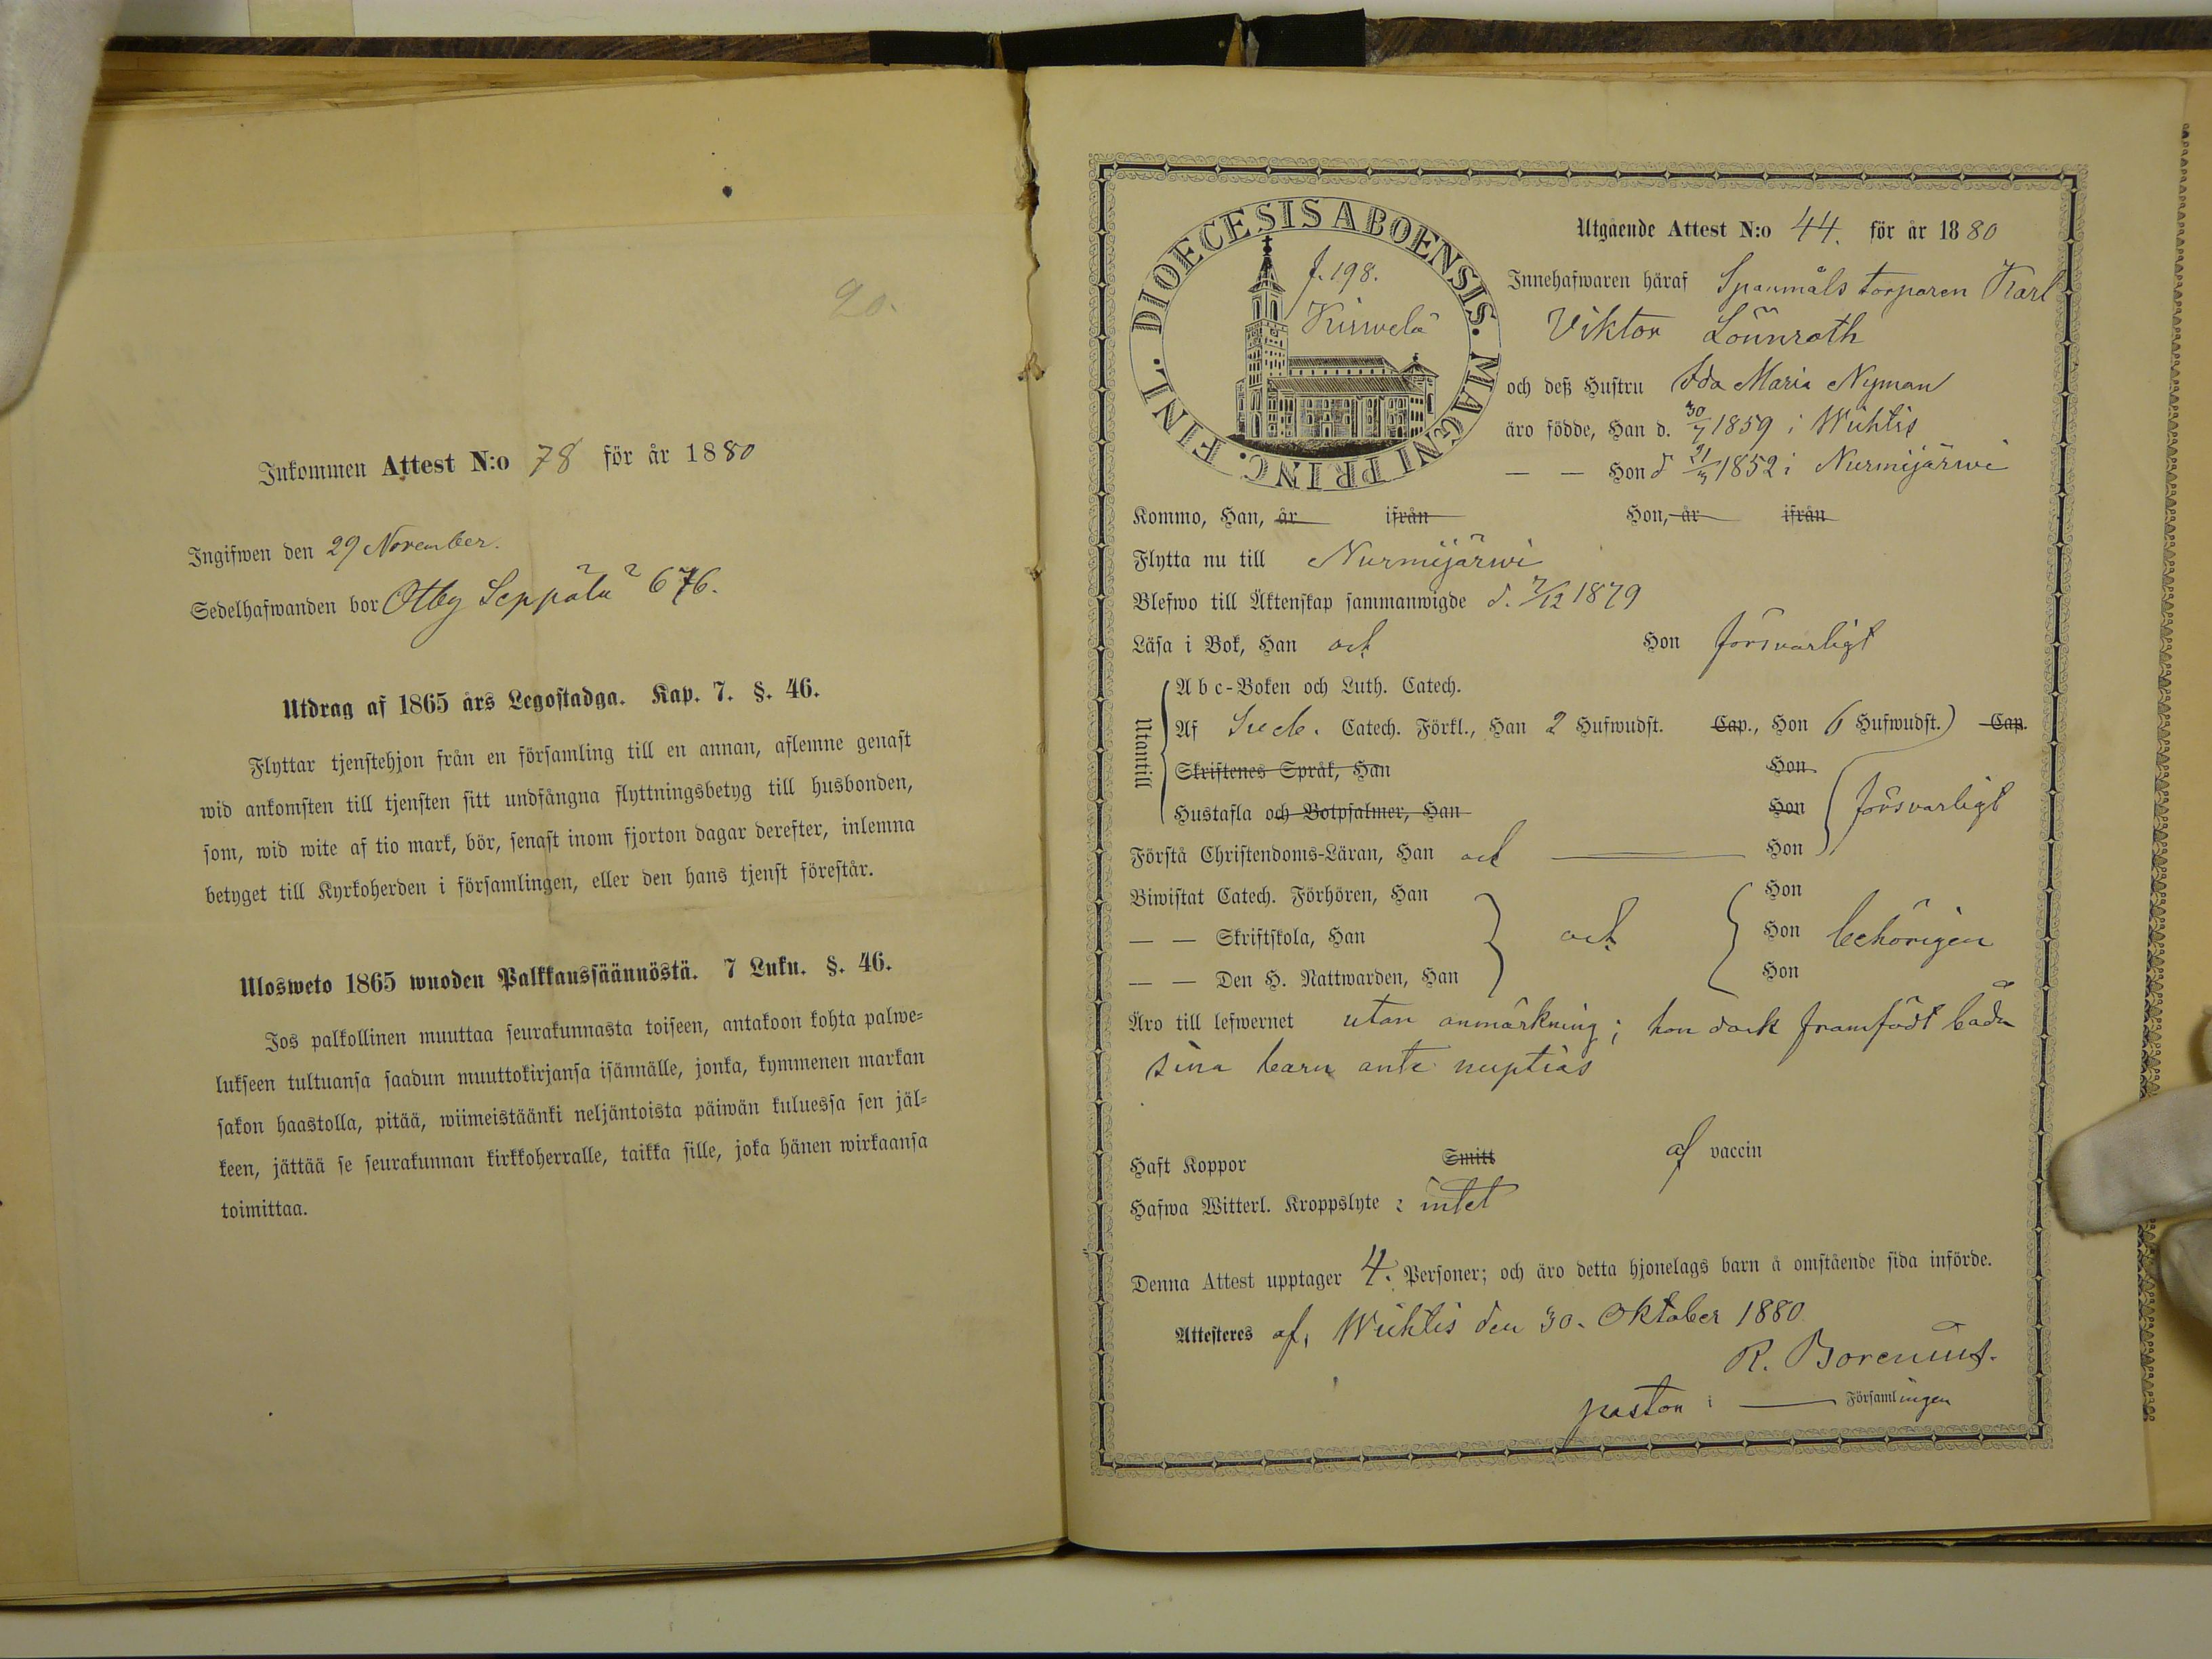 20.
Inkommen Attest N:o 78 för år 1880
Ingifwen den 29 November.
Sedelhafwanden bor Otby Seppälä 676.
Utdrag af 1865 års Legostadga. Kap. 7. §. 46.
Flyttar tjenstehjon från en församling till en annan, aflemne genast
wid ankomsten till tjensten sitt undfångna flyttningsbetyg till husbonden,
som, wid wite af tio mark, bör, senast inom fjorton dagar derefter, inlemna
betyget till Kyrkoherden i församlingen, eller den hans tjenst förestår.
Ulosweto 1865 wuoden Palkkaussäännöstä. 7 Luku. §. 46.
Jos palkollinen muuttaa seurakunnasta toiseen, antakoon kohta palwe=
lukseen tultuansa saadun muuttokirjansa isännälle, jonka, kymmenen markan
sakon haastolla, pitää, wiimeistäänki neljäntoista päiwän kuluessa sen jäl=
keen, jättää se seurakunnan kirkkoherralle, taikka sille, joka hänen wirkaansa
toimittaa.
DIOECESIS ABOENSIS. MAGNI PRINC. FINL.
f. 198.
Kirwelä
Utgående Attest N:o 44. för år 1880
Innehafwaren häraf Spanmåls torparen Karl
Viktor Lönnroth
och deß Hustru Ida Maria Nyman
äro födde, Han d. 30/7 1859 i Wichtis
— — Hon d 21/3 1852 i Nurmijärwi
Kommo, Han, år ifrån Hon, år ifrån
Flytta nu till Nurmijärwi
Blefwo till Äktenskap sammanwigde d. 7/12 1879
Läsa i Bok, Han och Hon försvarligt
Utantill
A b c-Boken och Luth. Catech.
Af Sveb. Catech. Förkl., Han 2 Hufwudst. Cap., Hon 6 Hufwudst.) Cap.
Skriftenes Språk, Han Hon
Hustafla och Botpsalmer, Han Hon försvarligt
Förstå Christendoms-Läran, Han och — Hon
Biwistat Catech. Förhören, Han Hon
— — Skriftskola, Han och Hon behörigen
— — Den H. Nattwarden, Han Hon
Äro till lefwernet utan anmärkning; hon dock framfödt båda
sina barn ante nuptias
Haft Koppor Smitt af vaccin
Hafwa Witterl. Kroppslyte : intet
Denna Attest upptager 4. Personer; och äro detta hjonelags barn å omstående sida införde.
Attesteres af, Wichtis den 30. Oktober 1880
R. Borenius.
pastor i — Församlingen